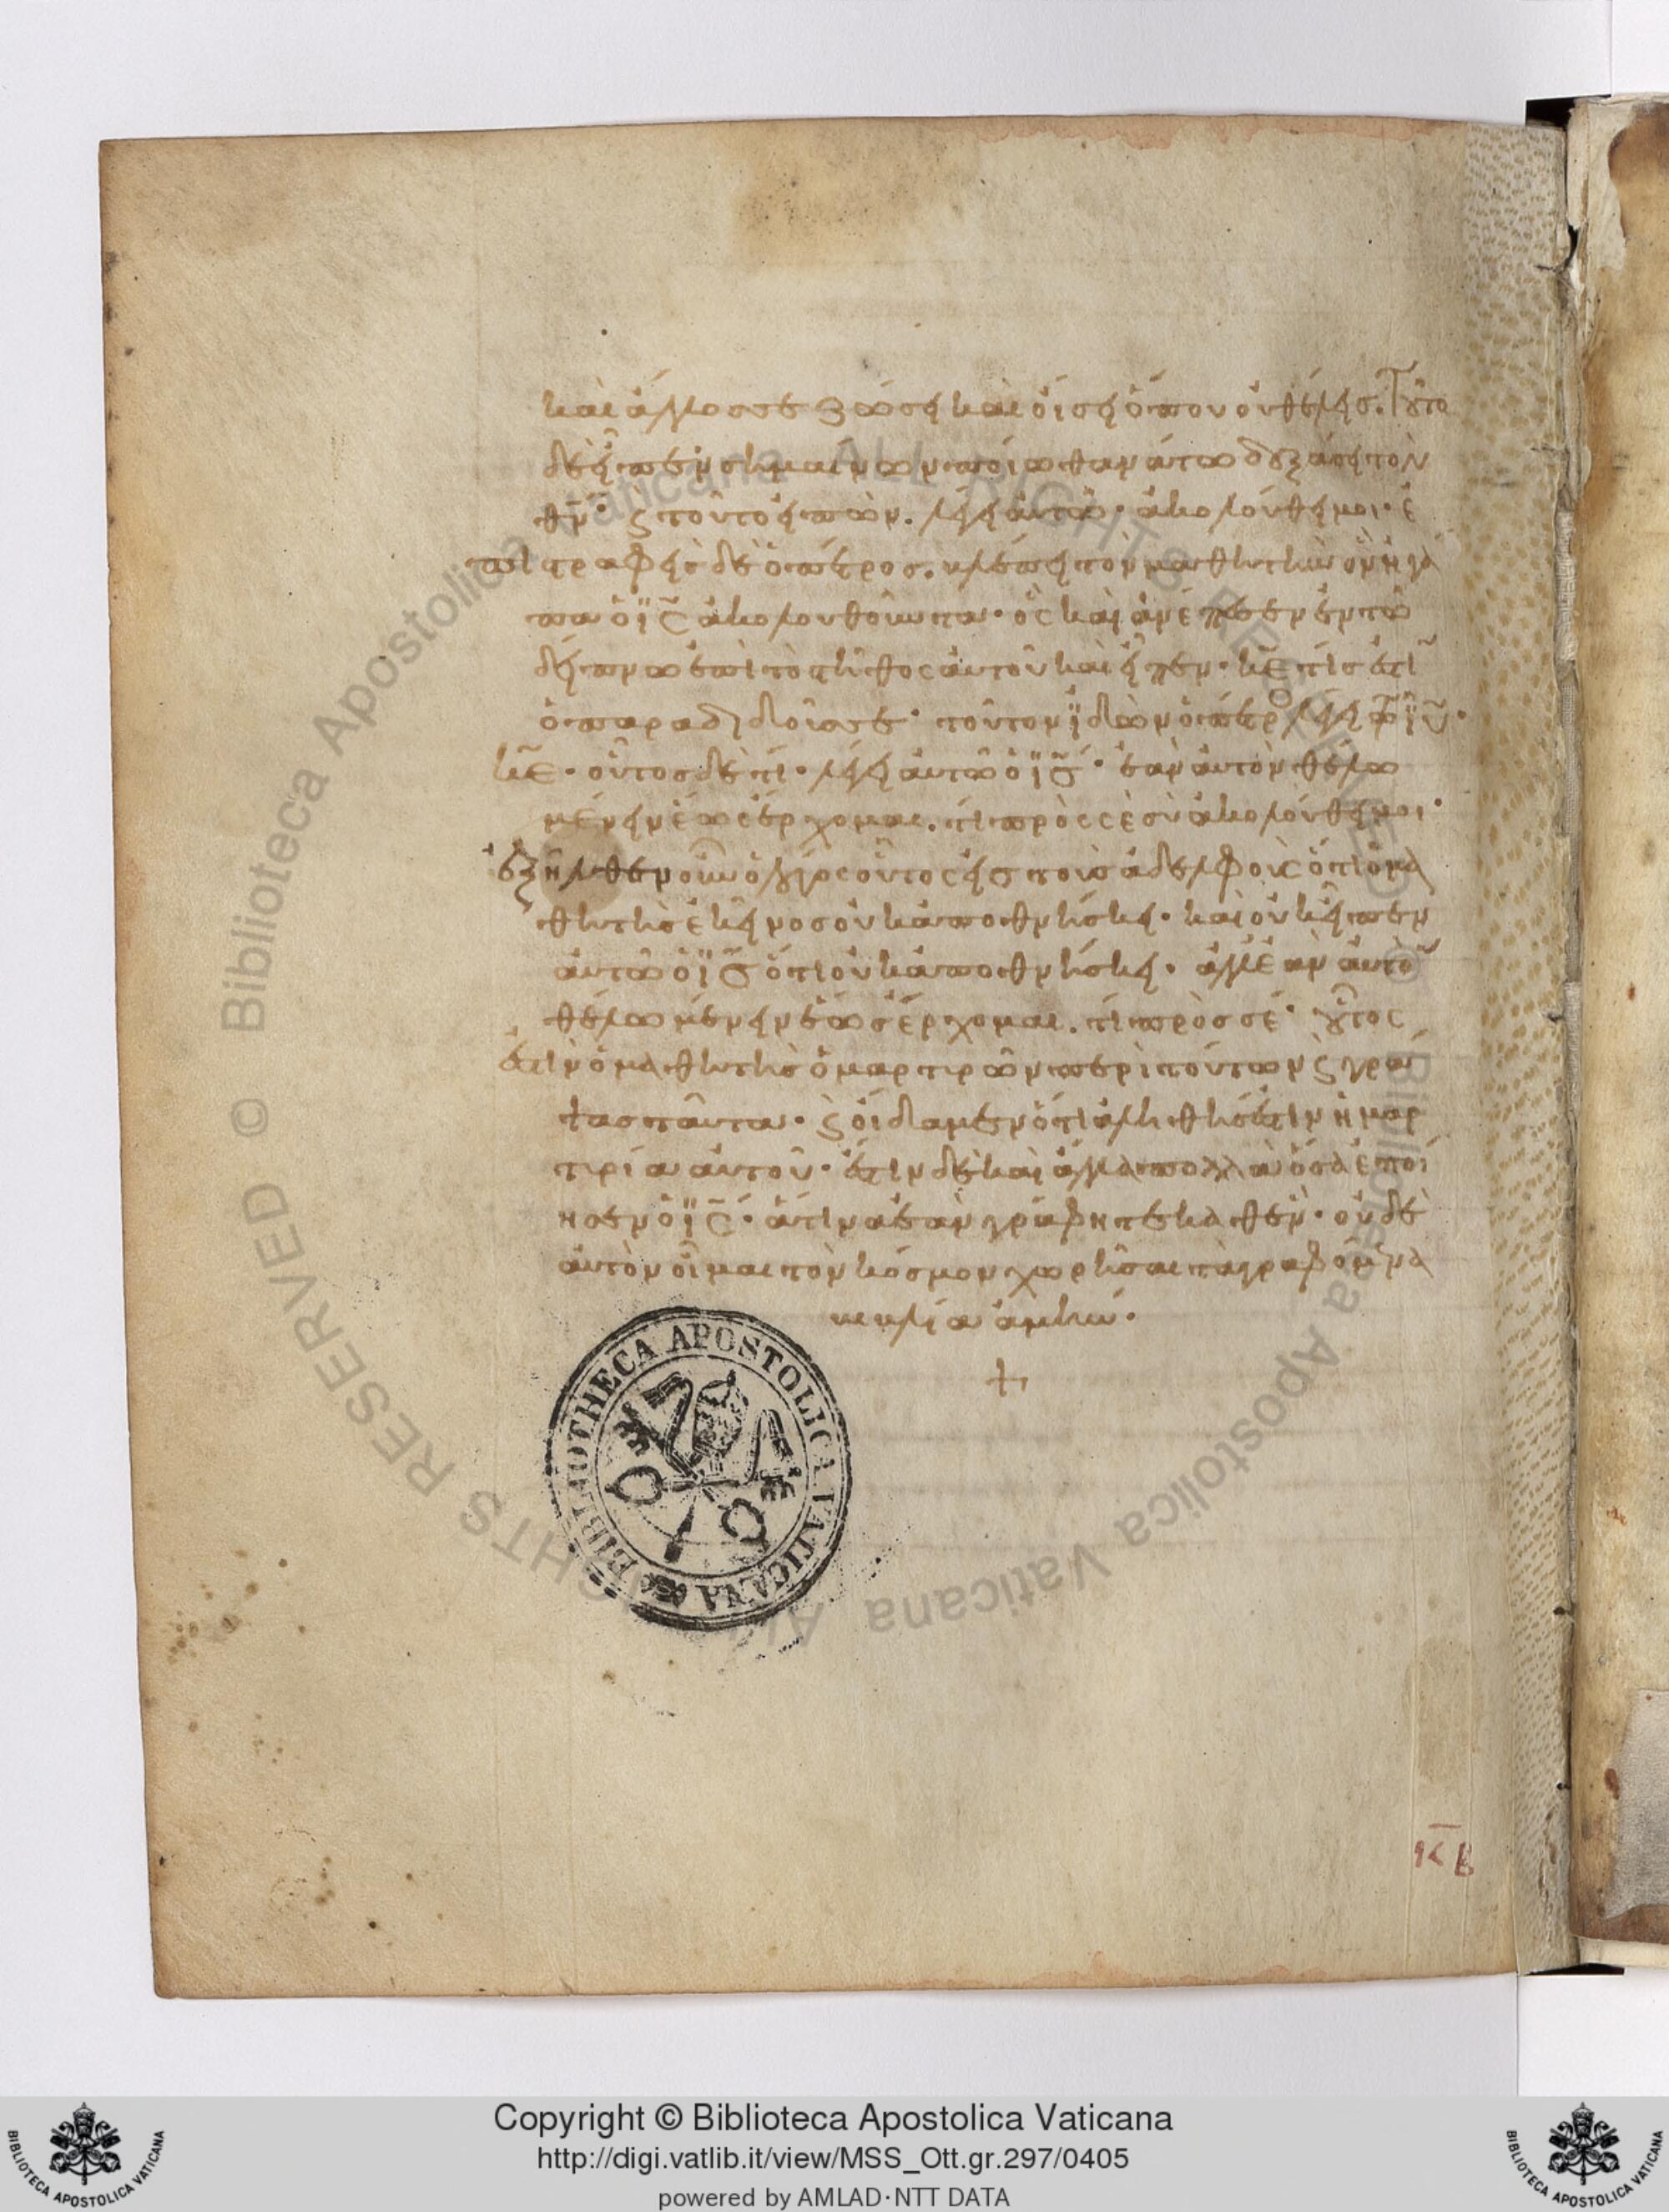 καὶ ἄλλος σε ζώσει καὶ οἴσει ὅπου οὐ θέλεις. Τοῦτο
δὲ εἶπεν σημαίνων ποίω θανάτω δοξάσει τὸν
θν̄· ϗ τοῦτο εἰπὼν. λέγει αὐτῶ· ἀκολούθει μοι· ἐ
πιστραφεὶς δὲ ὁ πέτρος. βλέπει τὸν μαθητὴν ὃν ἠγά
πα ὁ ϊς̄ ἀκολουθοῦντα· ὃς καὶ ἀνέπεσεν ἐν τῶ
δείπνω ἐπὶ τὸ στῆθος αὐτοῦ καὶ εἶπεν· κε̄ τίς ἐστϊ
ὁ παραδιδούς σε· τοῦτον ϊδὼν ὁ πέτρο λέγει τῶ ϊῡ·
κε̄· οὗτος δὲ τί· λέγει αὐτῶ ὁ ϊς̄· ἐὰν αὐτὸν θέλω
μένειν ἕως ἔρχομαι. τί πρὸς σὲ σὺ ἀκολούθει μοι·
ἐξῆλθεν οὖν ὁ λόγος οὗτος εἰς τοὺς ἀδελφοὺς ὅτι ὁ μα
θητὴς ἐκεῖνος οὐκ ἀποθνήσκει· καὶ οὐκ εἶπεν
αὐτῶ ὁ ϊς̄ ὅτι οὐκ ἀποθνήσκει· ἀλλ' ἐὰν αὐτὸ
θέλω μένειν ἕως ἔρχομαι. τί πρὸς σέ· οὗτος
ἐστὶν ὁ μαθητὴς ὁ μαρτιρῶν περὶ τούτων ϗ γρά
ψας ταῦτα· ϗ οἴδαμεν ὅτι ἀληθής ἐστιν ἡ μαρ
τιρία αὐτοῦ· ἔστιν δὲ καὶ ἄλλα πολλὰ ὅσα ἐποί
ησεν ὁ ϊς̄· ἅτινα ἐὰν γράφητε καθεν· οὐδὲ
αὐτὸν οἶμαι τὸν κόσμον χωρῆσαι τὰ γραφόμενα
βιβλία ἀμήν·
+
κβ
BIBLIOTHECA APOSTOLICA VATICANA
© Biblioteca Apostolica Vaticana ALL RIGHTS RESERVED
© Biblioteca Apostolica Vaticana ALL RIGHTS RESERVED
Copyright © Biblioteca Apostolica Vaticana
http://digi.vatlib.it/view/MSS_Ott.gr.297/0405
powered by AMLAD·NTT DATA
BIBLIOTECA APOSTOLICA VATICANA
BIBLIOTECA APOSTOLICA VATICANA